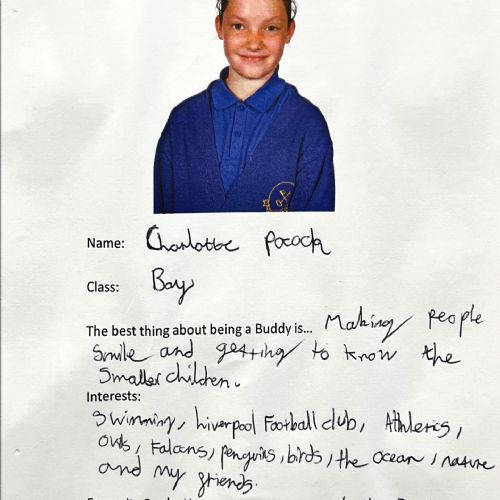 Name: Charlotte Pocock
Class: Bay
The best thing about being a Buddy is... Making people
smile and getting to know the
smaller children.
Interests:
Swimming, Liverpool Football club, Athletics,
owls, Falcons, penguins, birds, the ocean, nature
and my friends.